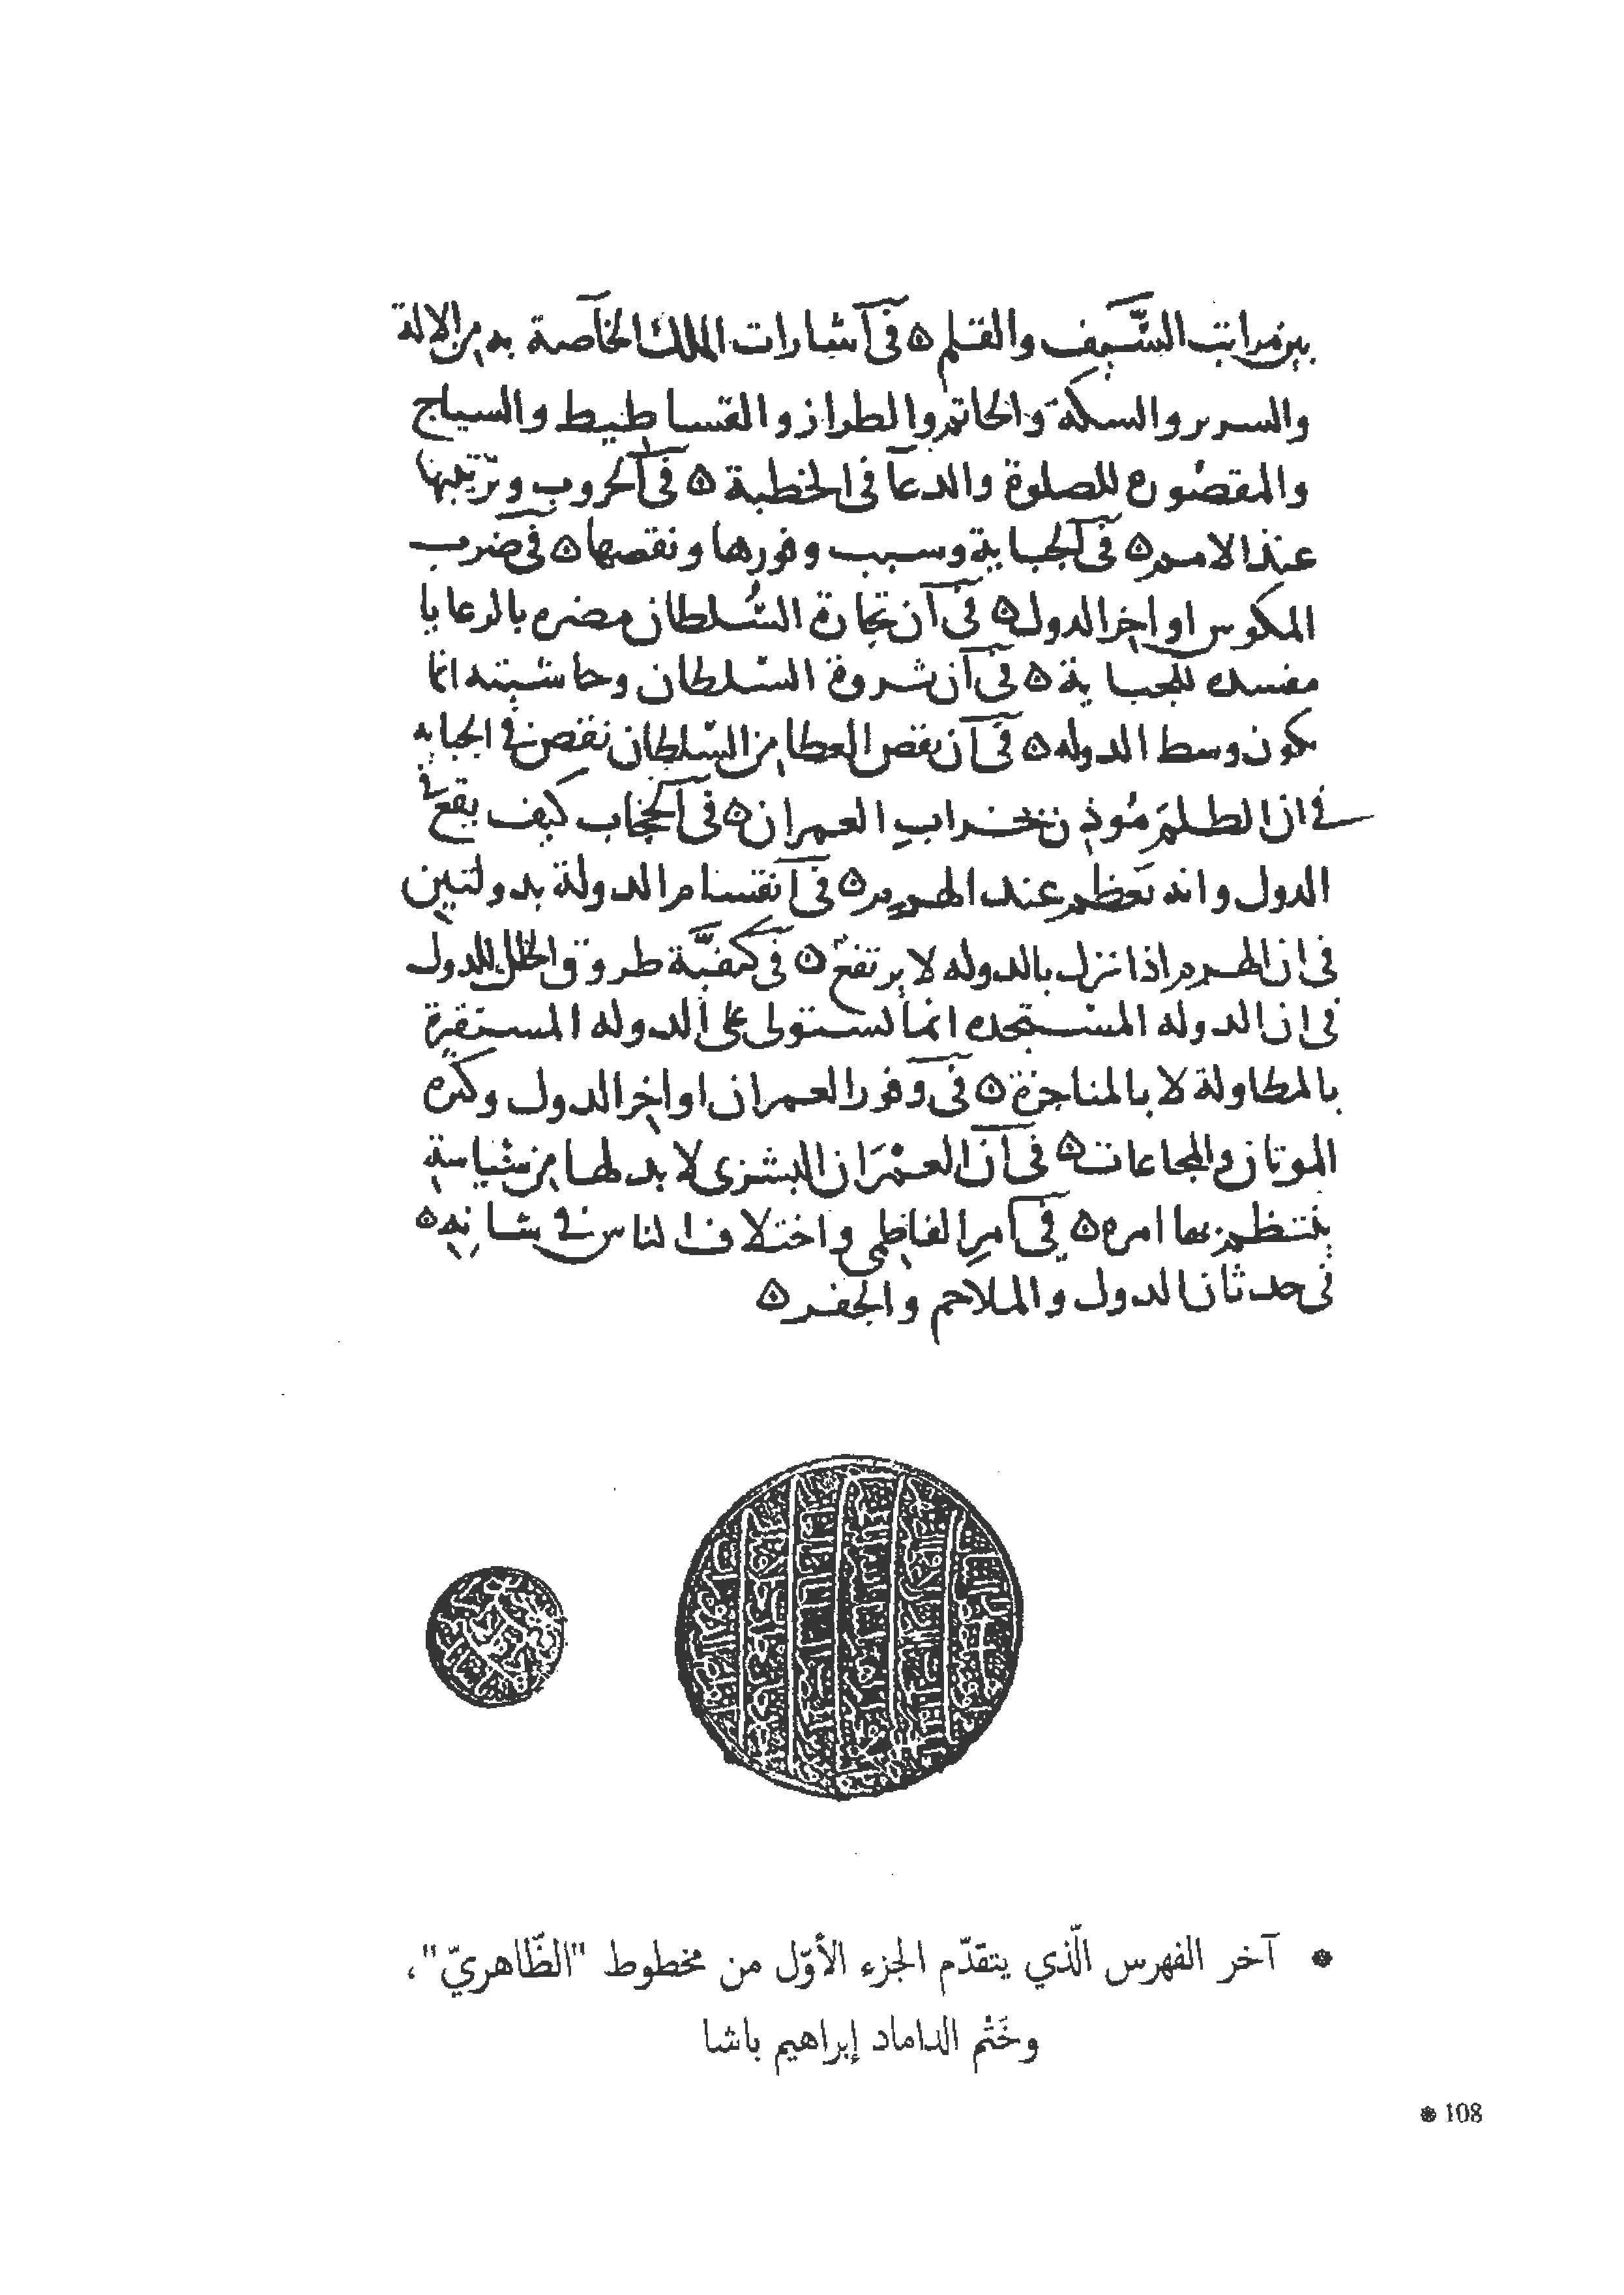 بين مراتب السَّيف والقلم ۞ في شارات الملك الخاصة به من الالة
والسرير والسكة والخاتم والطراز والفساطيط والسياج
والمقصُوره للصلوة والدعا في الخطبة ۞ في الحروب وترتيبها
عند الامم ۞ في الجباية وسبب وفورها ونقصها ۞ في ضرب
المكوس اواخر الدول ۞ في ان تجارة السُّلطان مضره بالرعايا
مفسده للجباية ۞ في ان ثروة السّلطان وحاشيته انما
يكون وسط الدوله ۞ في ان نقص العطا من السّلطان نقص في الجبايه
في ان الظلمَ مُوذن بخراب العمران ۞ في الحجاب كيف يقع في
الدول وانه يعظم عند الهرم ۞ في انقسام الدولة بدولتين
في ان الهرم اذا نزل بالدوله لا يرتفع ۞ في كيفيَّة طروق الخلل للدول
في ان الدوله المستجده انما تستولى على الدوله المستقرة
بالمطاولة لا بالمناجزة ۞ في وفور العمران اواخر الدول وكثره
الموتان والمجاعات ۞ في ان العمْرَان البشري لا بد لها من سياسة
ينتظم بها امره ۞ في امرِ الفاطمي واختلاف الناس في شانه ۞
في حدثان الدول والملاحم والجفر ۞
* آخر الفهرس الّذي يتقدّم الجزء الأوّل من مخطوط "الظّاهريّ"،
وخَتْم الداماد إبراهيم باشا
108 *